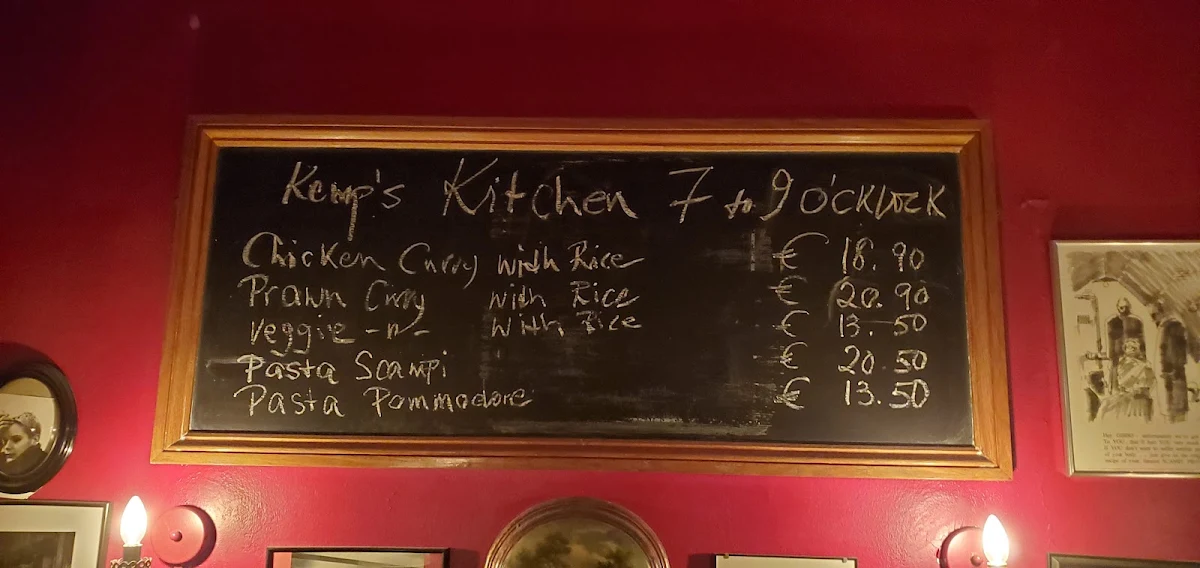 Kemp's Kitchen 7 to 9 O'CKLOCK
Chicken Curry with Rice € 18.90
Prawn Curry with Rice € 20.90
Veggie -"- with Rice € 13.50
Pasta Scampi € 20.50
Pasta Pommodore € 13.50